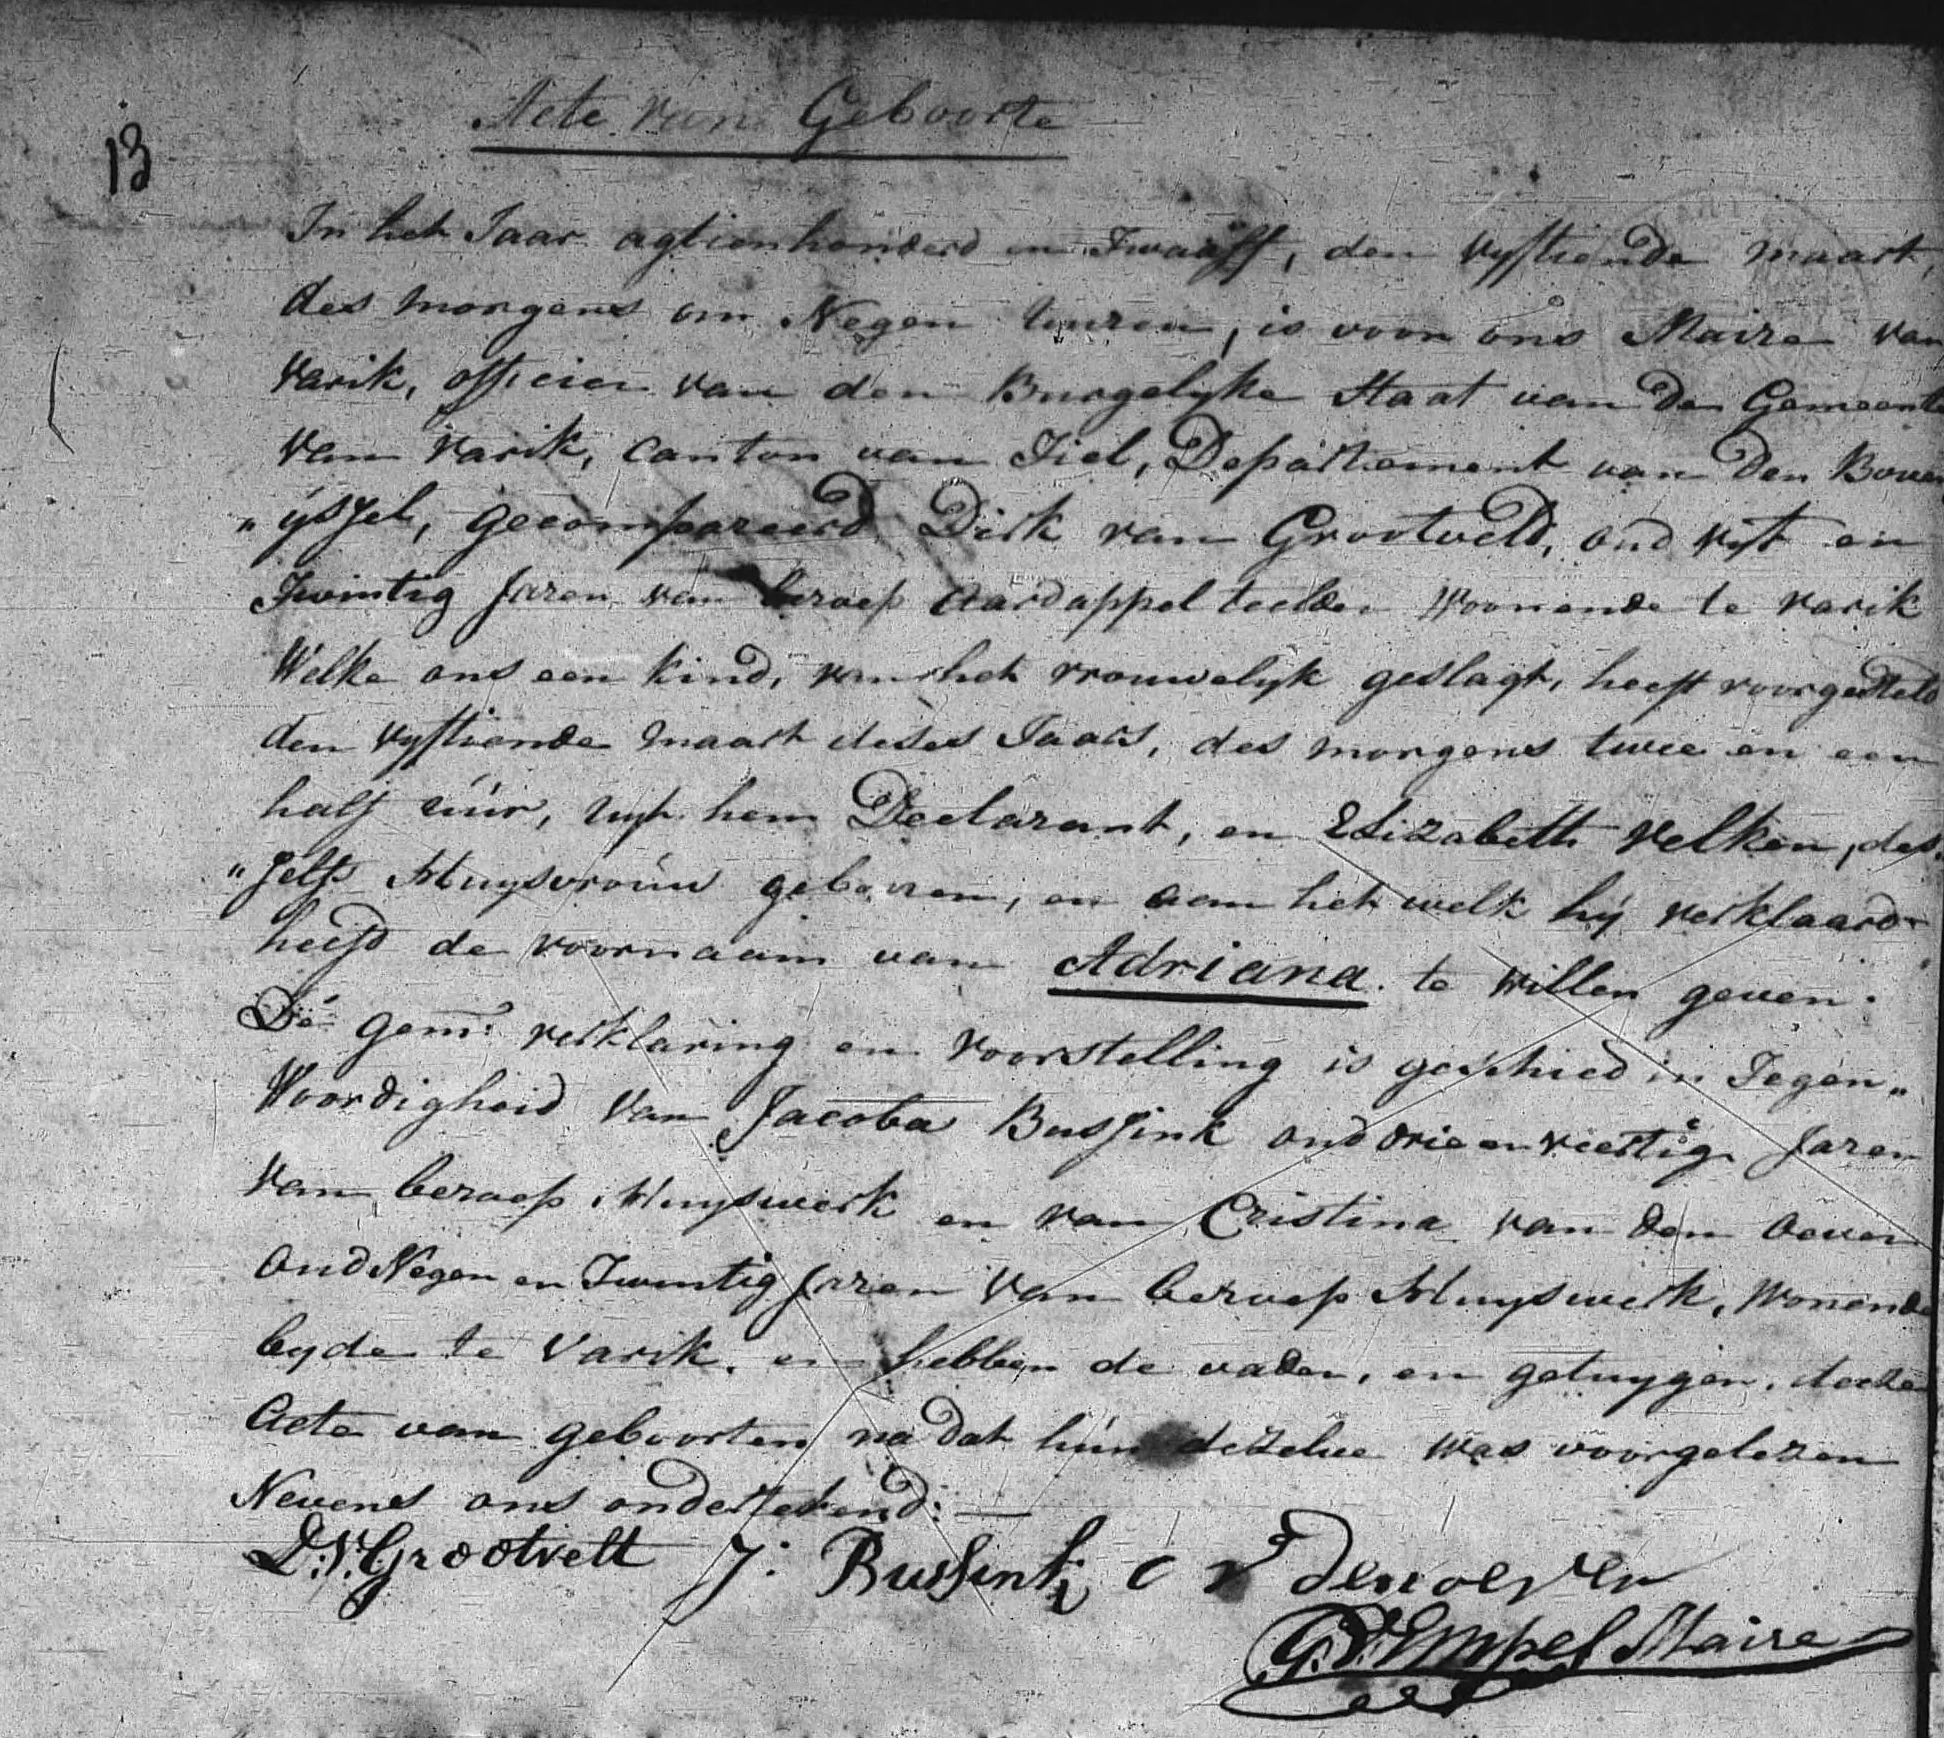 Acte van Geboorte
13
In het Jaar agtienhonderd en Twaalff, den vyftiende maart,
des morgens om Negen Uuren, is voor ons Maire van
Varik, officier van den Burgelyke Staat van de Gemeente
van Varik, Canton van Tiel, Departement van den Boven
„ ÿssel, gecompareerd Dirk van Grootveld, oud vyf en
Twintig Jaren van beroep Aardappel teelder woonende te Varik
Welke ons een kind, van het vrouwelyk geslagt, heeft voorgesteld
den vyftiende maart deses Jaars, des morgens twee en een
half uúr, uyt hem Declarant, en Elizabeth Velken, des
„ selfs Huysvrouw geboren, en aan het welk hÿ verklaard
heeft de voornaam van Adriana. te willen geven.
De gem: verklaring en voorstelling is geschied in Tegen„
Woordigheid van Jacoba Bussink oud drie en veertig Jaren
van beroep Huyswerk en van Cristina van den Oever
Oud Negen en Twintig Jaren van beroep Huyswerk, wonende
byde te Varik. en hebben de vader, en getuygen, deeze
Acte van geboorten na dat hún dezelve was voorgelezen
Nevens ons ondertekend: —
D: V: Grootvelt J: Bussink C v Den oever
G: V: Empel Maire